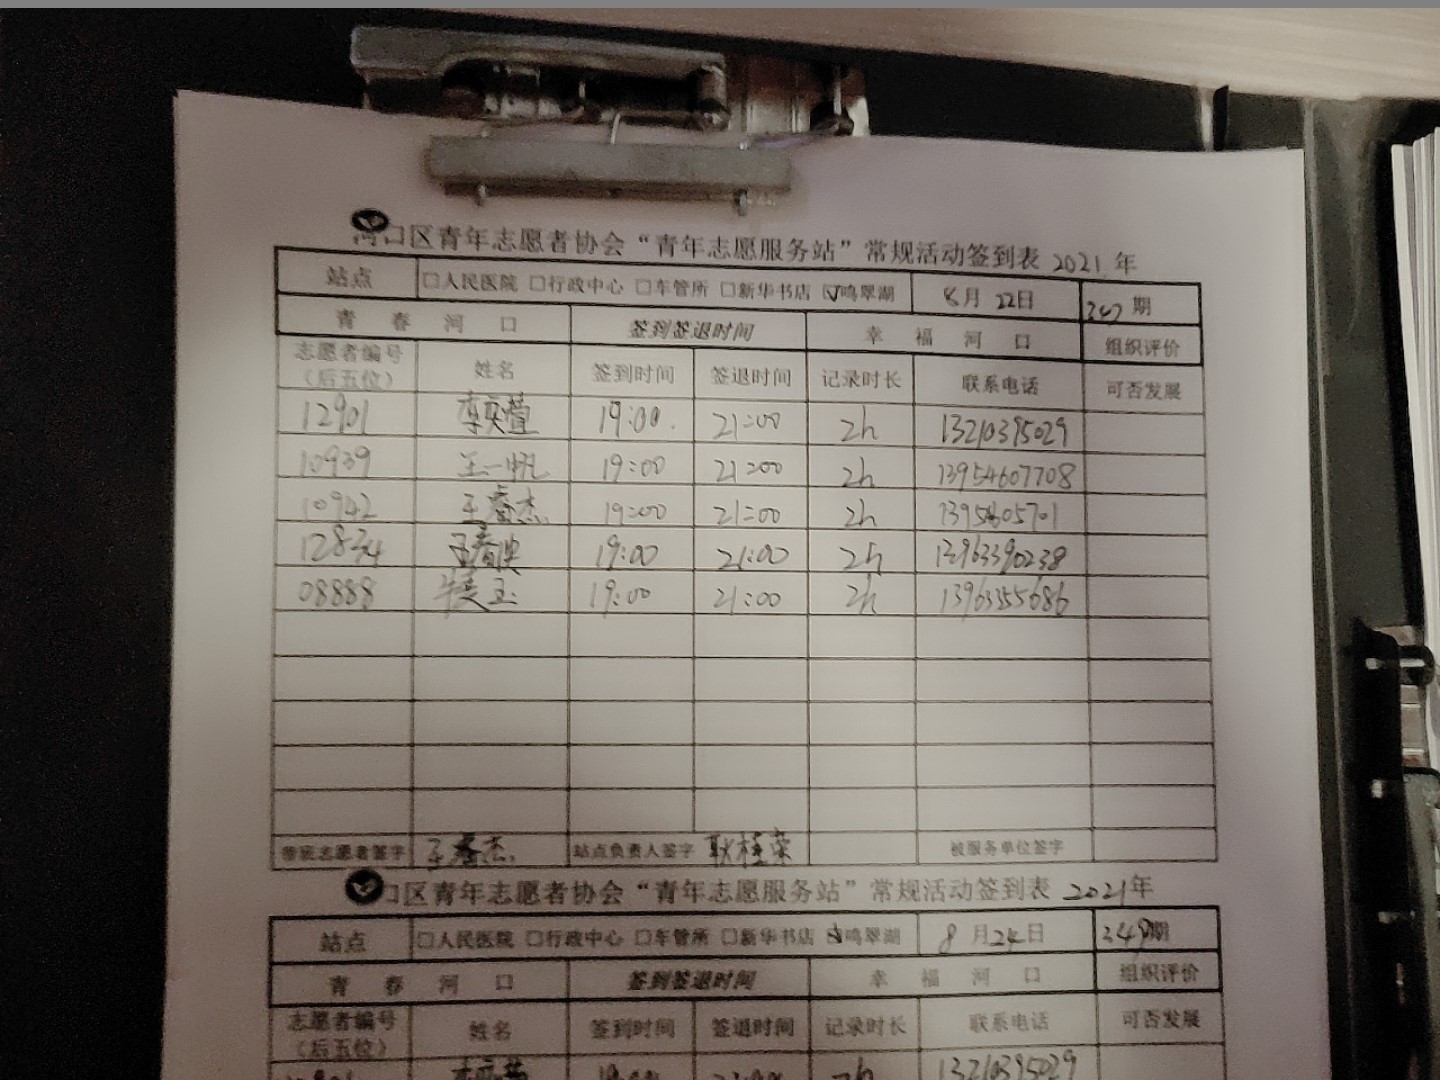 河口区青年志愿者协会“青年志愿服务站”常规活动签到表 2021 年
站点 □人民医院 □行政中心 □车管所 □新华书店 ☑鸣翠湖 8月 22日 247 期
青 春 河 口 签到签退时间 幸 福 河 口 组织评价
志愿者编号（后五位） 姓名 签到时间 签退时间 记录时长 联系电话 可否发展
12901 李奕萱 19:00 21:00 2h 13210395029
10939 王一帆 19:00 21:00 2h 13954607708
10942 王睿杰 19:00 21:00 2h
12834 19:00 21:00 2h 13963390238
08888 19:00 21:00 2h 13963355686
带班志愿者签字 王睿杰 站点负责人签字 耿桂荣 被服务单位签字
口区青年志愿者协会“青年志愿服务站”常规活动签到表 2021年
站点 □人民医院 □行政中心 □车管所 □新华书店 ☑鸣翠湖 8 月24日 248期
青 春 河 口 签到签退时间 幸 福 河 口 组织评价
志愿者编号（后五位） 姓名 签到时间 签退时间 记录时长 联系电话 可否发展
13210395029